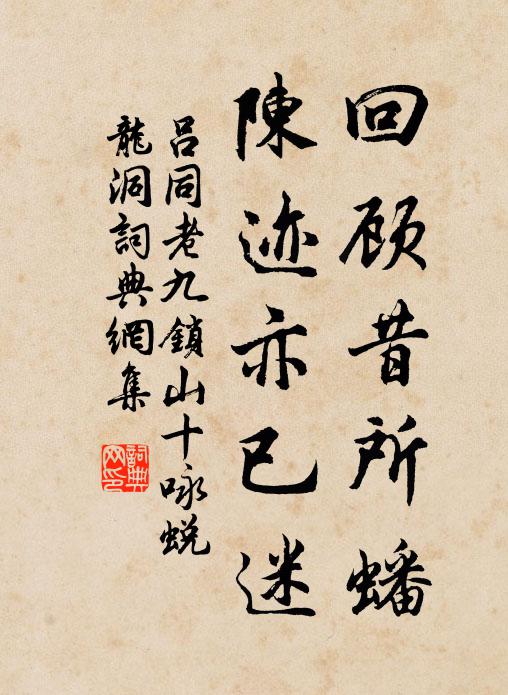 回顾昔所蟠
陳迹亦已迷
吕同老九鎖山十咏蜕
龍洞詞典網集
詞典
网印